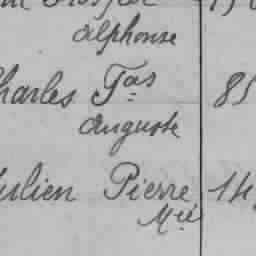 Alphonse
Charles Fas 85
Auguste
Julien Pierre 14
Mié